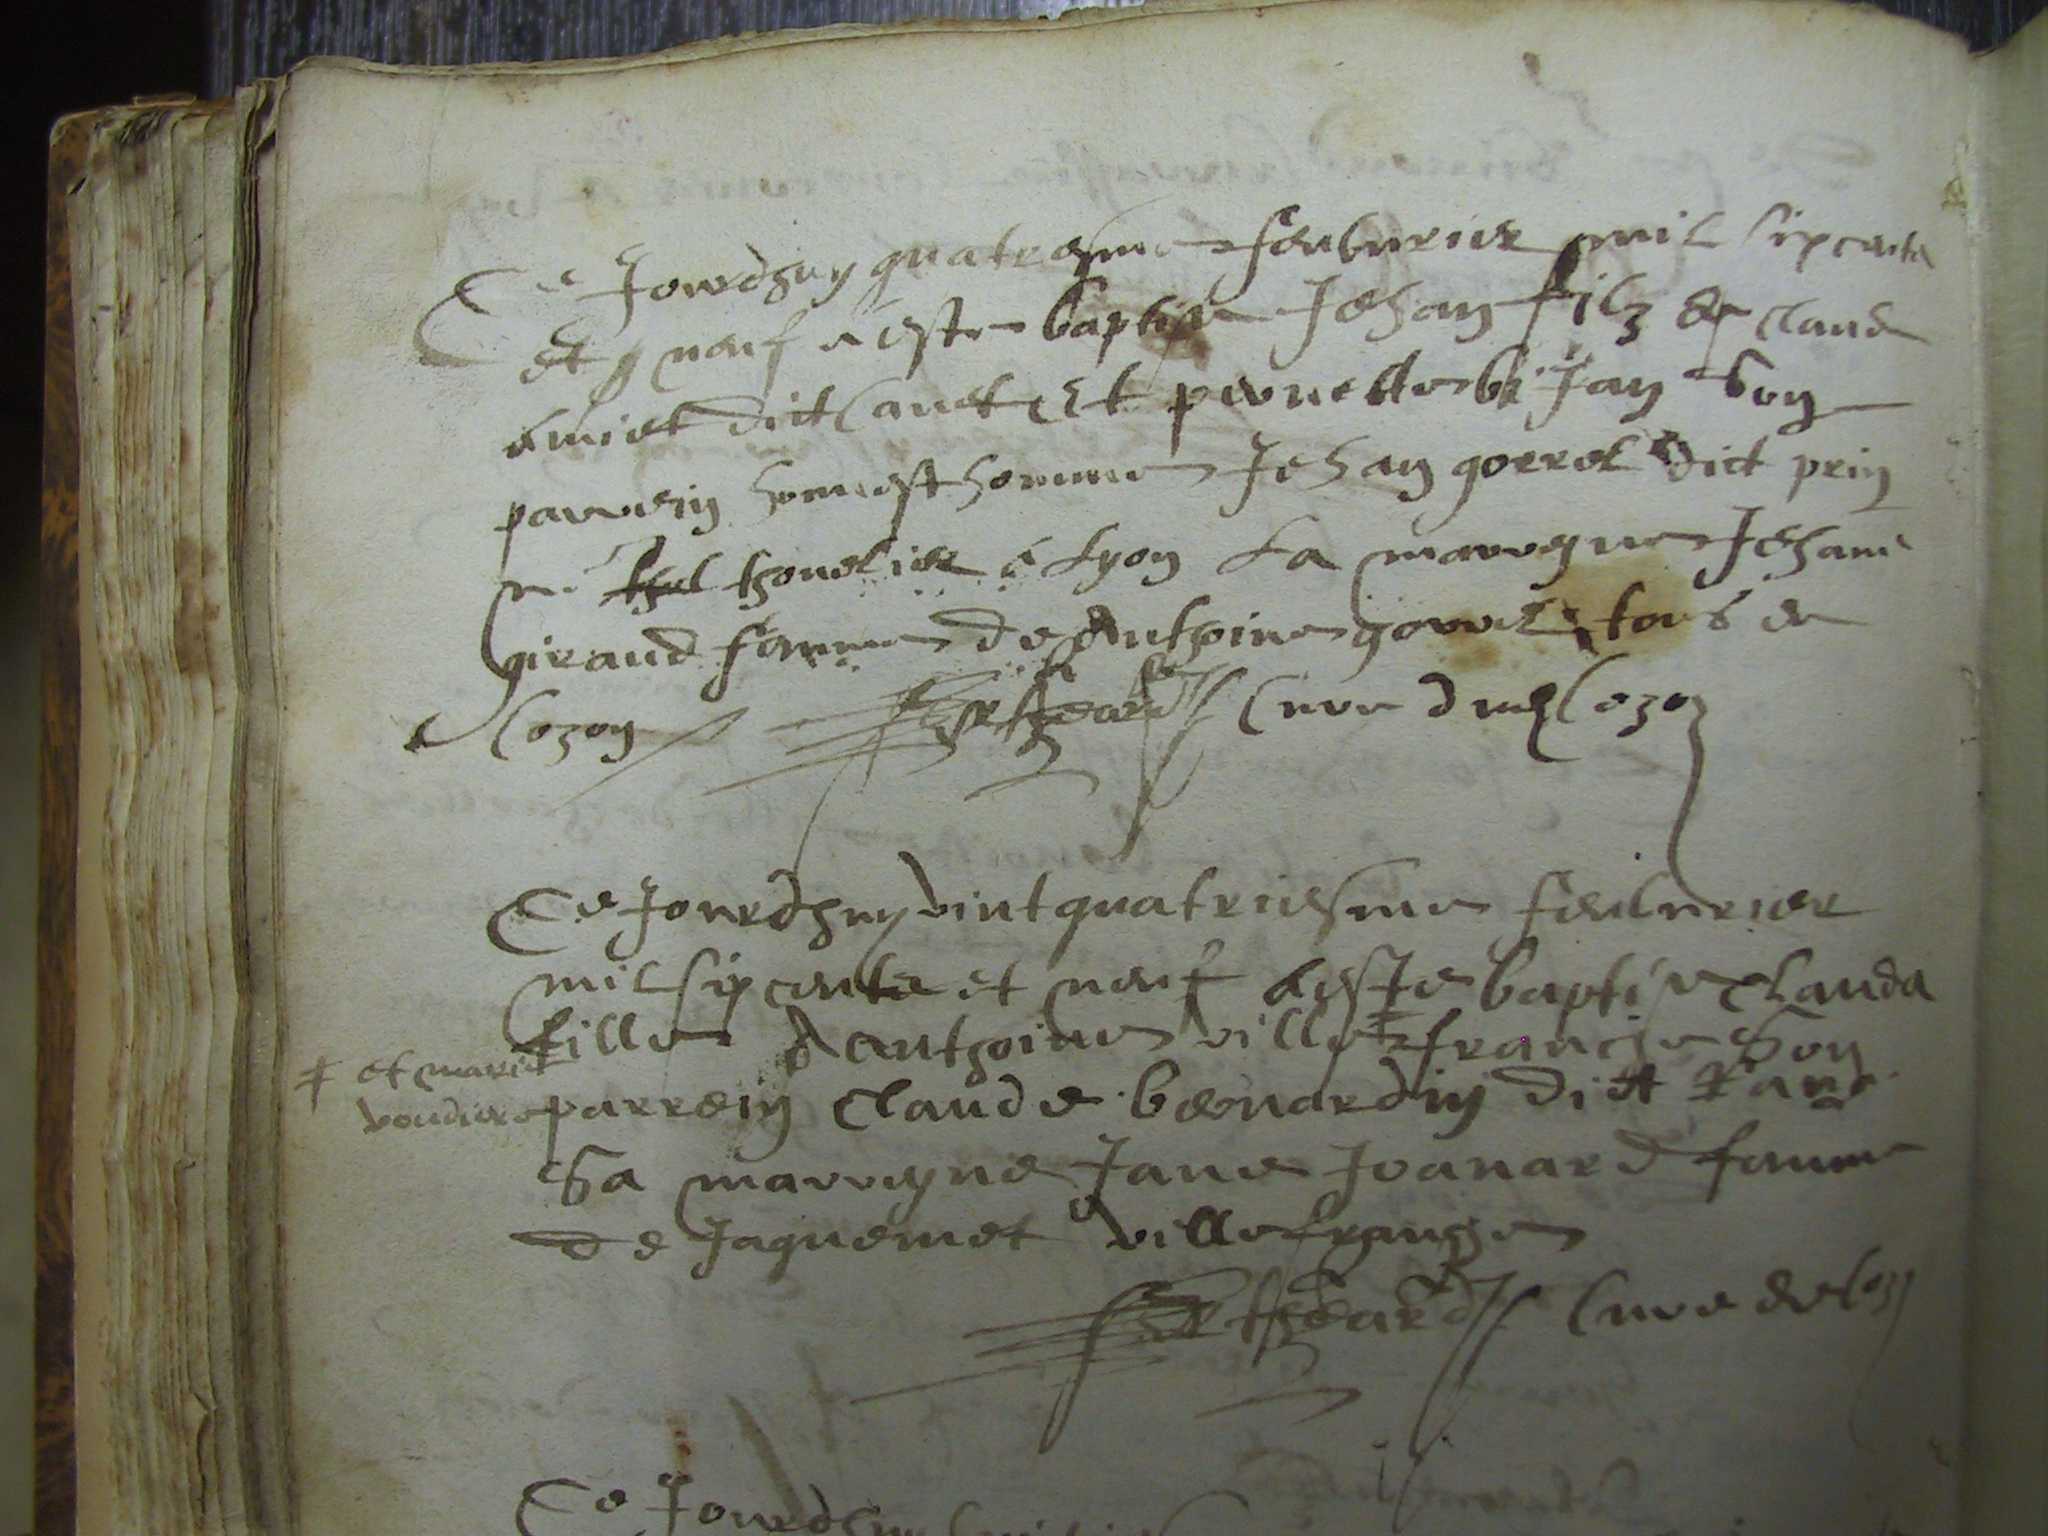 Ce Jourdhuy quatresme feubvrier mil sixcents
et neuf a este baptise Jehan filz de Claude
Amiet dict Canet Et pernette Jan Son
parrein honneste homme Jehan gorrel dict prin
thonelier a Lyon La marreyne Jehane
giraud femme de Anthoine gorrel tous de
Cozon Cure dud Cozon
Ce Jourdhuy vintquatriesme feubvrier
mil sixcents et neuf a este baptise Clauda
fille d anthoine villefranche Son
et marie
parrein Claude bernardin dict
Sa marreyne Jane Joanard femme
de Jaquemet villefranche
Cure de Coz
Ce Jourdhuy